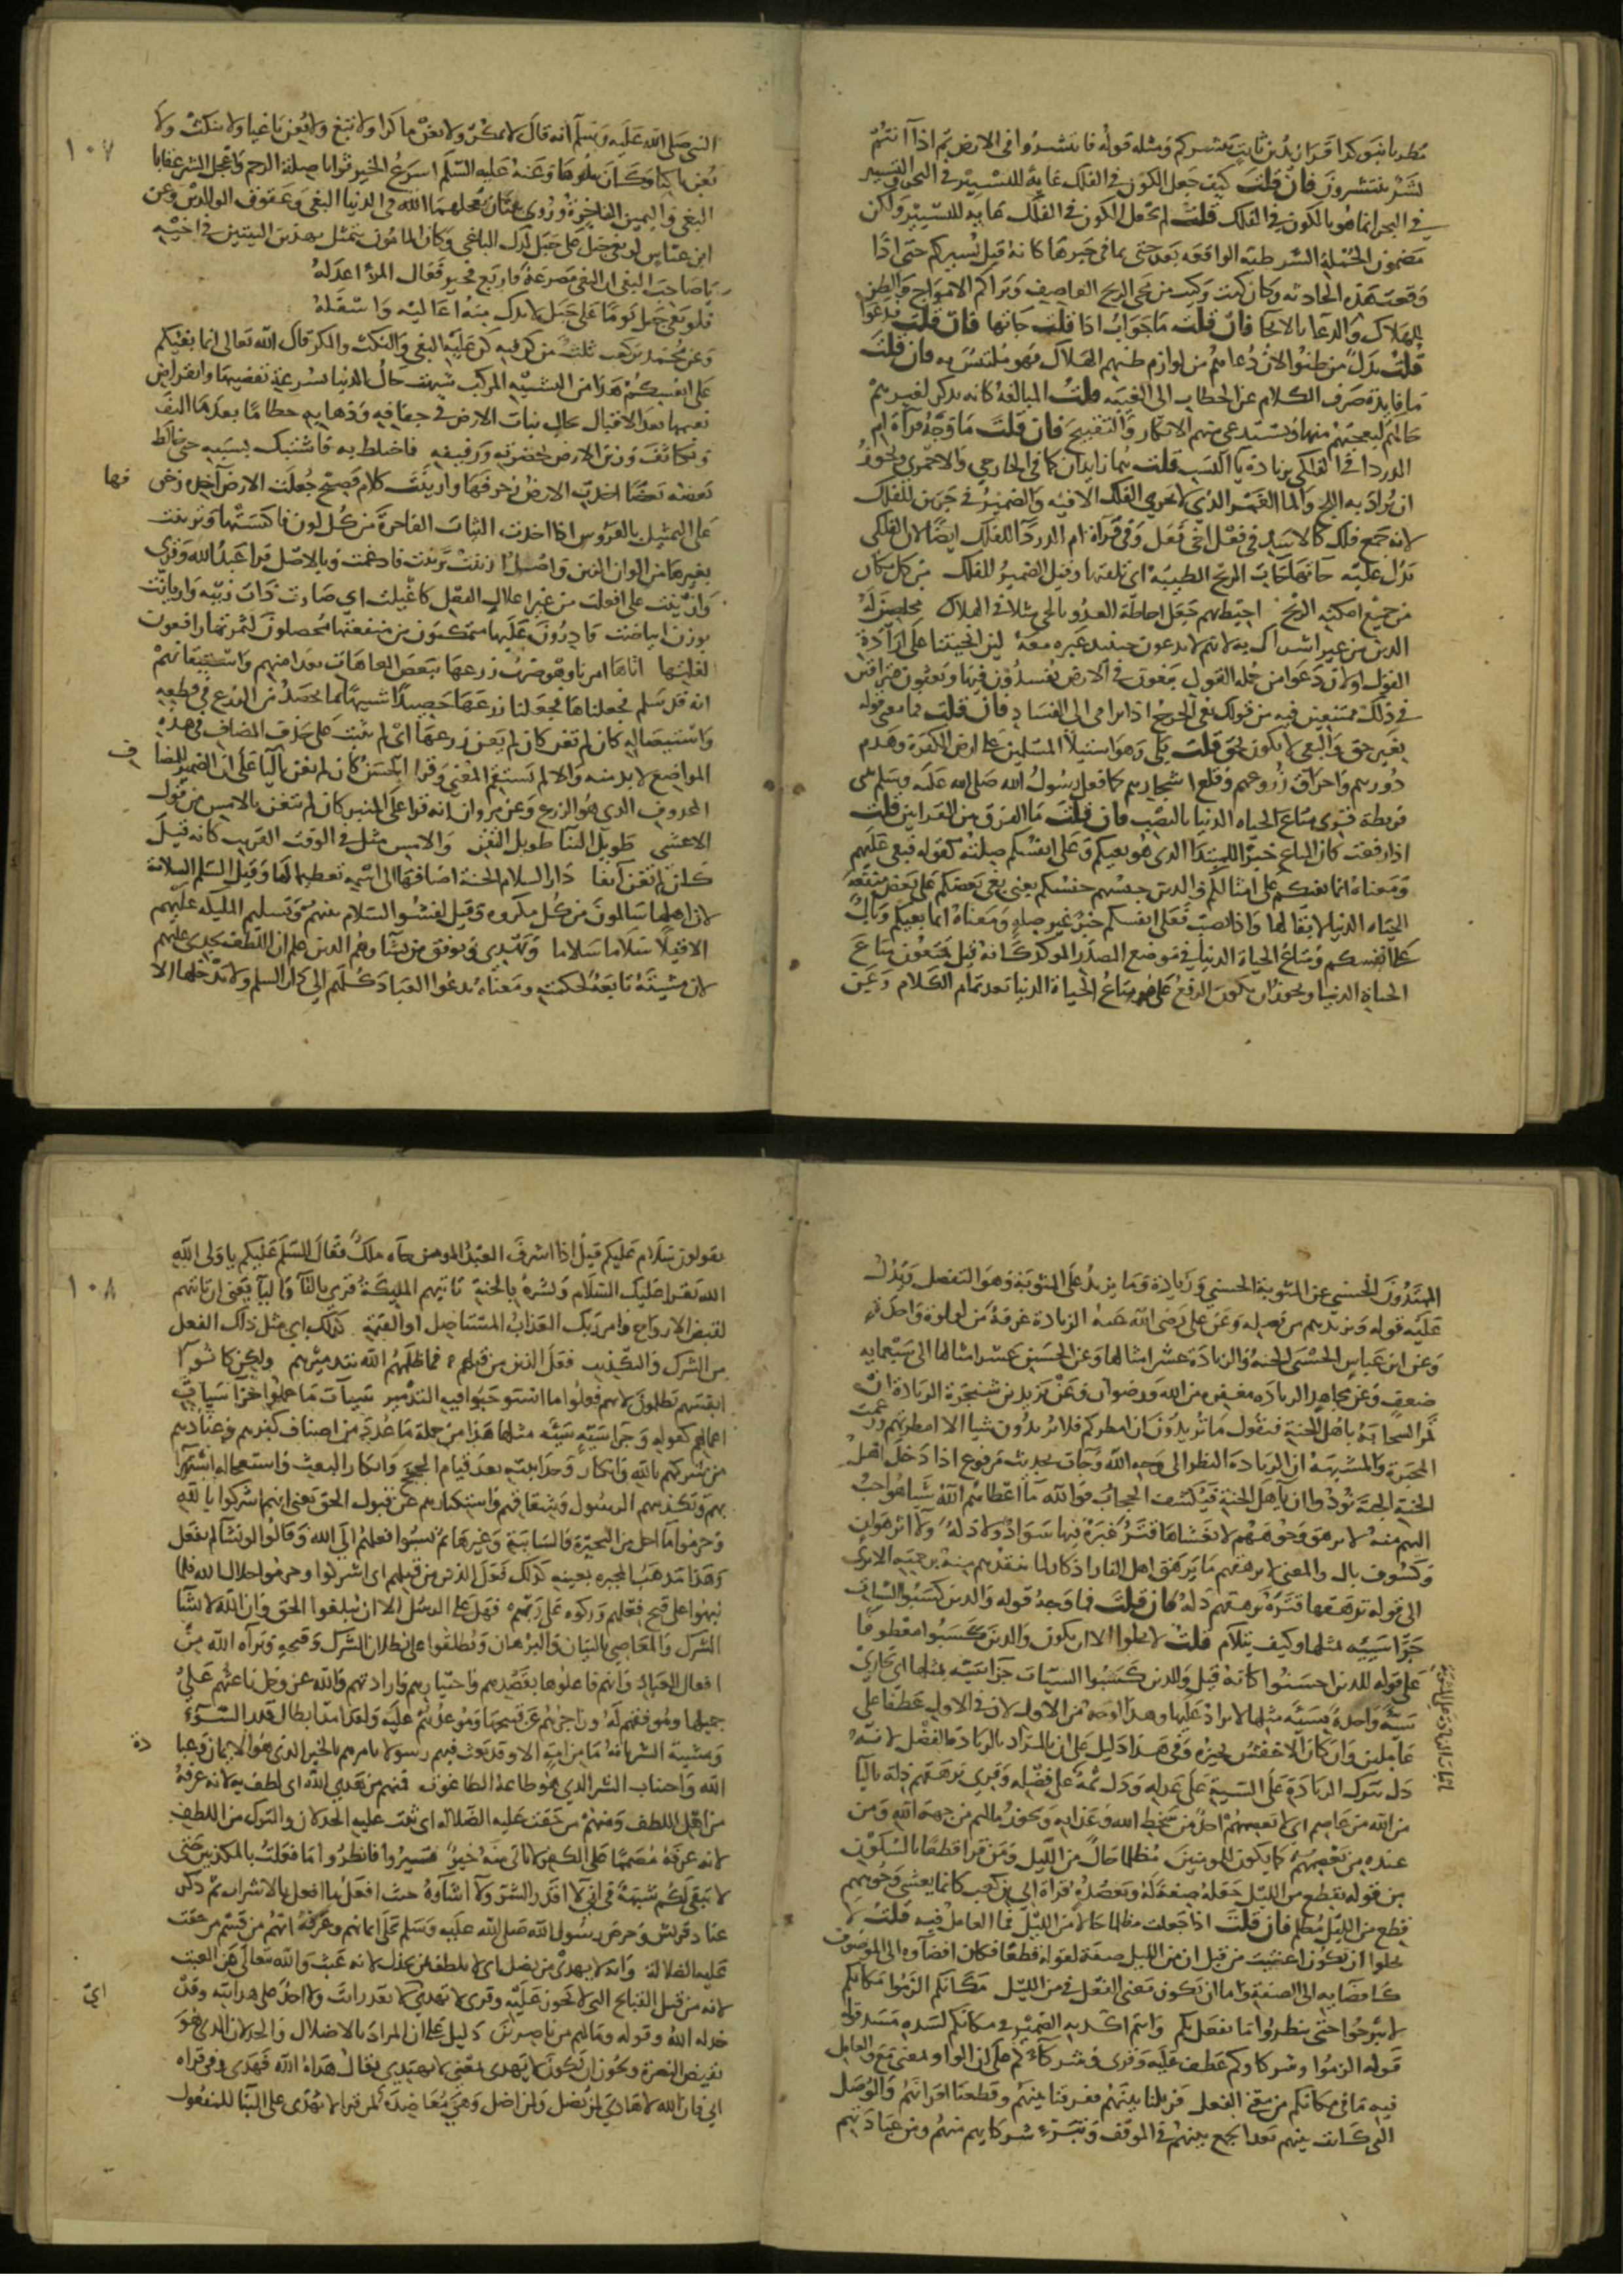 قرا زيد بن ثابت ينشركم ومثله قوله فانتشروا فى الارض ثم اذا انتم
بشر تنتشرون فان قلت كيف جعل الكون فى الفلك غاية للتسيير فى البحر والتسيير
فى البحر انما هو بالكون فى الفلك قلت لم يجعل الكون فى الفلك غاية للتسيير ولكن
مضمون الجملة الشرطية الواقعة بعد حتى بما فى حيزها كانه قيل يسيركم حتى اذا
وقعت هذه الحادثة وكان كيت وكيت من مجى الريح العاصف وتراكم الامواج والظن
للهلاك والدعا بالانجا فان قلت ما جواب اذا قلت جاتها فان قلت فدعوا
قلت بدل من ظنوا لان دعاهم من لوازم ظنهم الهلاك فهو ملتبس به فان قلت
ما فايدة صرف الكلام عن الخطاب الى الغيبة قلت المبالغة كانه يذكر لغيرهم
حالهم ليعجبهم منها ويستدعى منهم الانكار والتقبيح فان قلت ما وجه قراة ام
الدردا فى الفلكى بزيادة ياى النسب قلت هما زايدتان كما فى الخارجى والاحمرى ويجوز
ان يراد به اللج والما الغمر الذى لا تجرى الفلك الا فيه والضمير فى جرين للفلك
لانه جمع فلك كالاسد فى فعل اخى فعل وفى قراة ام الدردا للفلك ايضا لان الفلكى
يدل عليه جاتها جات الريح الطيبة اى تلقتها وقيل الضمير للفلك من كل مكان
من جميع امكنة الموج احيط بهم جعل احاطة العدو بالحى مثلا فى الهلاك مخلصين له
الدين من غير اشراك به لانهم لا يدعون حينيذ غيره معه لين انجيتنا على ارادة
القول او لان دعوا من جملة القول يبغون فى الارض يفسدون فيها ويعثون متراقين
فى ذلك ممعنين فيه من قولك بغى الجرح اذا ترامى الى الفساد فان قلت فما معنى قوله
بغير حق والبغى لا يكون بحق قلت بلى وهو استيلا المسلمين على ارض الكفرة وهدم
دورهم واحراق زروعهم وقلع اشجارهم كما فعل رسول الله صلى الله عليه وسلم ببنى
قريظة قرى متاع الحياه الدنيا بالنصب فان قلت ما الفرق بين القراتين قلت
اذا رفعت كان المتاع خبرا للمبتدا الذى هو بغيكم وعلى انفسكم صلته كقوله فبغى عليهم
ومعناه انما بغيكم على امثالكم والذين جنسهم جنسكم يعنى بغى بعضكم على بعض منفعة
الحياه الدنيا لا بقا لها واذا نصبت فعلى انفسكم خبر غير صلة ومعناه انما بغيكم وبال
على انفسكم ومتاع الحياة الدنيا فى موضع المصدر الموكد كانه قيل يتمتعون متاع
الحياة الدنيا ويجوز ان يكون الرفع على هو متاع الحياة الدنيا بعد تمام الكلام وعن
١٠٧
النبى صلى الله عليه وسلم انه قال لا تمكر ولا تعن ماكرا ولا تبغ ولا تعن باغيا ولا تنكث ولا
تعن ناكثا وكان يتلوها وعنه عليه السلم اسرع الخير ثوابا صلة الرحم واعجل الشر عقابا
البغى واليمين الفاجرة وروى ثنتان يعجلهما الله فى الدنيا البغى وعقوق الوالدين وعن
ابن عباس لو بغى جبل على جبل لدك الباغى وكان المامون يتمثل بهذين البيتين فى اخيه
يا صاحب البغى ان البغى مصرعة فاربع فخير فعال المرء اعدله
فلو بغى جبل يوما على جبل لاندك منه اعاليه واسفله
وعن محمد بن كعب ثلث من كن فيه كن عليه البغى والنكث والمكر قال الله تعالى انما بغيكم
على انفسكم هذا من التشبيه المركب شبهت حال الدنيا بسرعة تقضيها وانقراض
نعيمها بعد الاقبال بحال نبات الارض فى جفافه وذهابه حطاما بعد ما التف
وتكاثف وزين الارض بخضرته ورفيفه فاختلط به فاشتبك بسببه حتى خالط
بعضه بعضا اخذت الارض زخرفها وازينت كلام فصيح جعلت الارض آخذة زخر فها
على التمثيل بالعروس اذا اخذت الثياب الفاخرة من كل لون فاكتستها وتزينت
بغيرها من الوان الزين واصل ازينت تزينت فادغمت وبالاصل قرا عبد الله وقرى
وازينت على افعلت من غير اعلال الفعل كاغيلت اى صارت ذات زينة وازيانت
بوزن ابياضت قادرون عليها متمكنون من منفعتها محصلون لثمرتها رافعون
لغلتها اتاها امرنا وهو ضرب زرعها ببعض العاهات بعد امنهم واستيقانهم
انه قد سلم فجعلناها فجعلنا زرعها حصيدا شبيها بما يحصد من الزرع فى قطعه
واستيصاله كان لم تغن كان لم يغن زرعها اى لم ينبت على حذف المضاف فى هذه
المواضع لا بد منه والا لم يستقم المعنى وقرا الحسن كان لم يغن باليا على ان الضمير للمضا ف
المحذوف الذى هو الزرع وعن مروان انه قرا على المنبر كان لم تتغن بالامس من قول
الاعشى طويل الثنا طويل التغن والامس مثل فى الوقت القريب كانه قيل
كان لم تغن آنفا دار السلام الجنة اضافها الى اسمه تعظيما لها وقيل السلم السلامة
لان اهلها سالمون من كل مكروه وقيل لفشو السلام بينهم وتسليم المليكة عليهم
الا قيلا سلاما سلاما ويهدى ويوفق من يشا وهم الذين علم ان اللطف يجدى عليهم
لان مشيته تابعة لحكمته ومعناه يدعوا العباد كلهم الى دار السلم ولا يدخلها الا
المهتدون الحسنى عن المثوبة الحسنى وزيادة وما يزيد على المثوبة وهو التفضل ويدل
عليه قوله ويزيدهم من فضله وعن على رضى الله عنه الزيادة غرفة من لولوة واحدة
وعن ابن عباس الحسنى الجنة والزيادة عشر امثالها وعن الحسن عشر امثالها الى سبعماية
ضعف وعن مجاهد الزيادة مغفرة من الله ورضوان وعن يزيد بن شجرة الزيادة ان
تمر السحابة باهل الجنة فتقول ما تريدون ان امطركم فلا يريدون شيا الا امطرتهم وزعمت
المجبرة والمشبهة ان الزيادة النظر الى وجه الله وجات بحديث مرفوع اذا دخل اهل
الجنة الجنة نودوا ان يا هل الجنة فيكشف الحجاب فوالله ما اعطاهم الله شيا هو احب
اليهم منه لا يرهق وجوههم لا يغشاها قتر غبرة فيها سواد ولا ذلة ولا اثر هوان
وكسوف بال والمعنى لا يرهقهم ما يرهق اهل النار اذكارا بما ينقذهم منه برحمته الا ترى
الى قوله ترهقها قترة وترهقهم ذلة فان قلت فما وجه قوله والذين كسبوا السيات
جزا سيئه بمثلها وكيف يتلام قلت لا يخلوا اما ان يكون والذين كسبوا معطوفا
على قوله للذين احسنوا كانه قيل وللذين كسبوا السيات جزا سيئه بمثلها اى تجازى
سيئة واحدة بسيئه مثلها لا يزاد عليها وهذا اوجه من الاول لان فى الاول عطفا على
عاملين وان كان الاخفش يجيزه وفى هذا دليل على ان المراد بالزيادة الفضل لانه
دل بترك الزيادة على السيئة على عدله ودل ثمة على فضله وقرى يرهقهم ذلة باليا
من الله من عاصم اى لا يعصمهم احد من سخط الله وعذابه ويجوز ما لهم من جهة الله ومن
عنده من يعصمهم كما يكون للمومنين مظلما حال من الليل ومن قرا قطعا بالسكون
من قوله بقطع من الليل جعله صفة له وتعضده قراة ابى بن كعب كانما يغشى وجوههم
قطع من الليل مظلم فان قلت اذا جعلت مظلما حالا من الليل فما العامل فيه قلت لا
يخلوا ان يكون اغشيت من قبل ان من الليل صفة لقوله قطعا فكان افضاوه الى الموصوف
كافضايه الى الصفة واما ان يكون معنى الفعل فى من الليل مكانكم الزموا مكانكم
لا تبرحوا حتى ينظروا ما نفعل بكم وانتم اكد به الضمير فى مكانكم لسده مسد قوله
قوله الزموا وشركاوكم عطف عليه وقرى وشركاءكم على ان الواو بمعنى مع والعامل
فيه ما فى مكانكم من معنى الفعل فزيلنا بينهم ففرقنا بينهم وقطعنا اقرانهم والوصل
التى كانت بينهم بعد الجمع بينهم فى الموقف وتبرء شركايهم منهم ومن عبادتهم
١٠٨
يقولون سلام عليكم قيل اذا اشرف العبد المومن جاه ملك فقال السلم عليكم يا ولى الله
الله يقرا عليك السلام وبشره بالجنة تاتيهم المليكة قرى بالتا واليا يعنى ان تاتيهم
لقبض الارواح وامر ربك العذاب المستاصل او القيمة كذلك اى مثل ذلك الفعل
من الشرك والتكذيب فعل الذين من قبلهم فما ظلمهم الله بتدميرهم ولكن كانوا
انفسهم يظلمون لانهم فعلوا ما استوجبوا فيه التدمير سيات ما عملوا جزا سيات
اعمالهم كقوله وجزا سيئه سيئه مثلها هذا من جملة ما عدد من اصناف كفرهم وعنادهم
من شركهم بالله وانكار وحدانيته بعد قيام الحجج وانكار البعث واستعجاله استهزا
بهم وتكذيبهم الرسول وشقاقهم واستكبارهم عن قبول الحق يعنى انهم اشركوا بالله
وحرموا ما احل من البحيرة والسايبة وغيرها ثم نسبوا فعلهم الى الله وقالوا لو نشا لم نفعل
وهذا مذهب المجبرة بعينه كذلك فعل الذين من قبلهم اى اشركوا وحرموا حلال الله فلما
نبهوا على قبح فعلهم وركوه على ربهم فهل على الرسل الا ان يبلغوا الحق وان الله لا يشا
الشرك والمعاصى بالبيان والبرهان ويطلعوا على بطلان الشرك وقبحه وبراه الله من
افعال العباد وانهم فاعلوها بقصدهم واختيارهم وارادتهم والله عز وجل باعثهم على
جميلها وموفقهم له وزاجرهم عن قبيحها وموعدهم عليه ولقد امد ابطال قدر السوء
ومشيية الشر بانه ما من امة الا وقد بعث فيهم رسولا يامرهم بالخير الذى هو الايمان وعبا دة
الله واجتناب الشر الذى هو طاعة الطاغوت فمنهم من هدى الله اى لطف به لانه عرفه
من اهل اللطف ومنهم من حقت عليه الضلالة اى ثبت عليه الخذلان والترك من اللطف
لانه عرفه مصمما على الكفر لا ياتى منه خير فسيروا فانظروا ما فعلت بالمكذبين حتى
لا يبقى لكم شبهة فى انى لا اقدر الشر ولا اشاوه حيث افعل ما افعل بالاشرار ثم ذكر
عناد قريش وحرص رسول الله صلى الله عليه وسلم على ايمانهم وعرفه انهم من قسم من حقت
عليه الضلالة وانه لا يهدى من يضل اى لا يلطف بمن يخذل لانه عبث والله تعالى عن العبث
لانه من قبيل القبايح التى لا تجوز عليه وقرى لا يهدى اى لا تقدر انت ولا احد على هدايته وقد
خذله الله وقوله وما لهم من ناصرين دليل على ان المراد بالاضلال الخذلان الذى هو
نقيض النصرة ويجوز ان يكون لا يهدى بمعنى لا يهتدى يقال هداه الله فهدى وفى قراه
ابى فان الله لا هادى لمن يضل ولمن اضل وهى معاضدة لمن قرا لا يهدى على البنا للمفعول